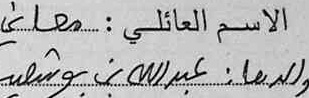 الاسم العائلي : معاني
والدها : عبد الله بن بوشعيب